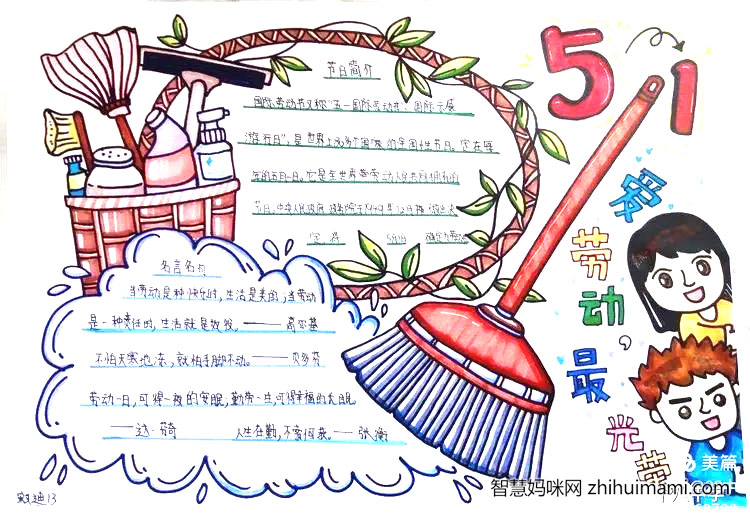 5 1
节日简介
国际劳动节又称"五一国际劳动节"、国际示威
游行日",是世界上80多个国家的全国性节日。定在每
年的五月一日。它是全世界劳动人民共同拥有的
节日,中央人民政府 1949年12月
爱劳动,最光荣
名言名句
当劳动是种快乐时,生活是美的;当劳动
是一种责任时,生活就是奴役。——高尔基
不怕天寒地冻,就怕手脚不动。——贝多芬
劳动一日,可得一夜的安眠,勤劳一生,可得幸福的长眠。
——达·芬奇 人生在勤,不索何获。——张衡
美篇
智慧妈咪网 zhihuimami.com